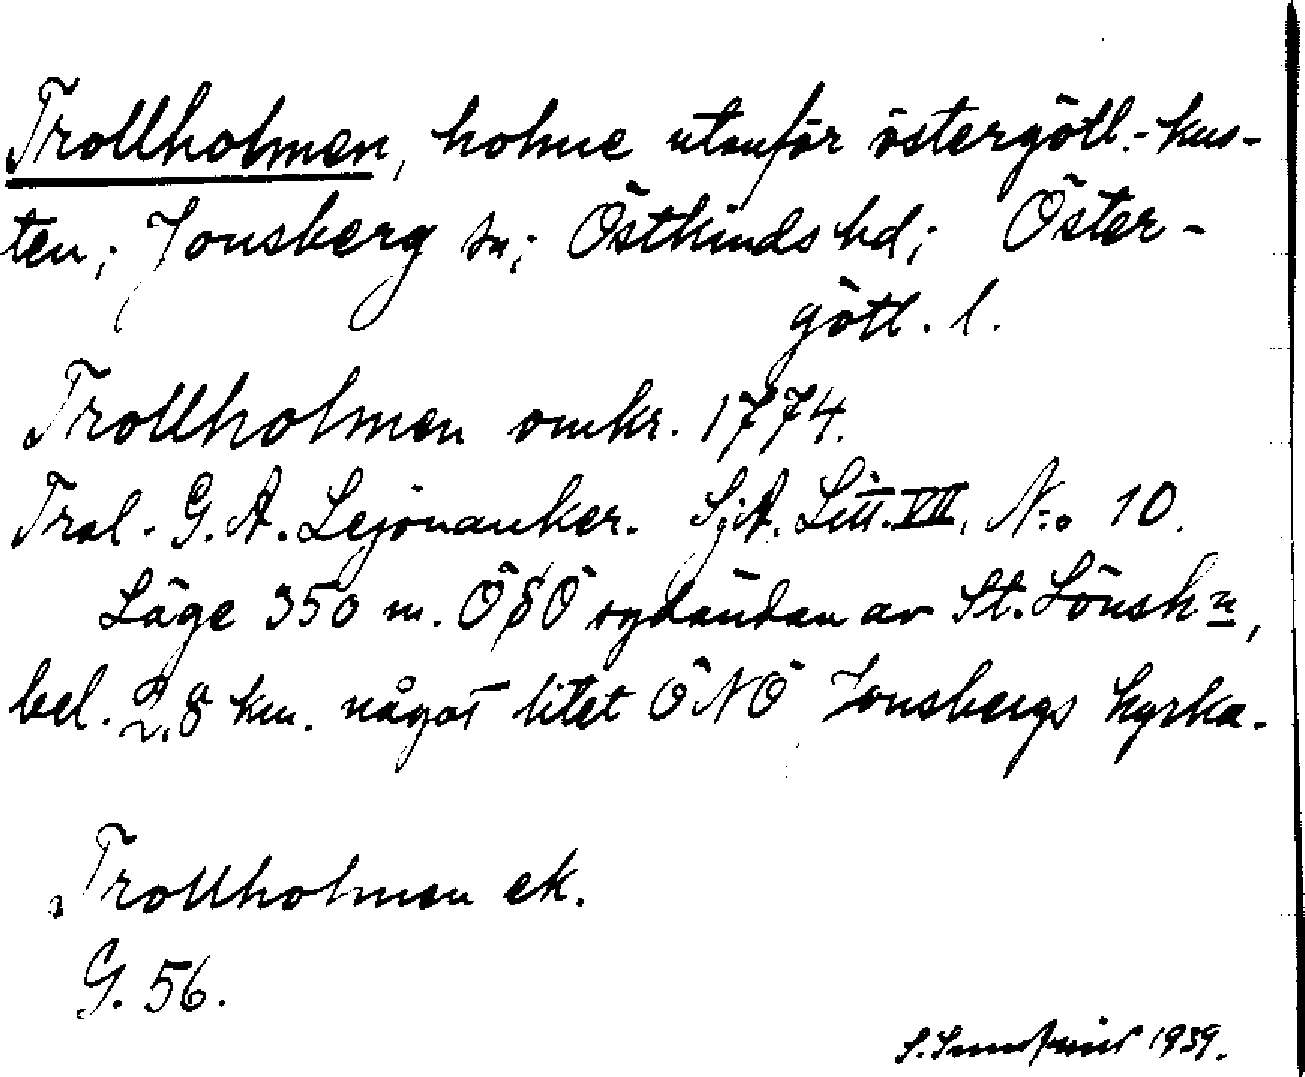 Trollholmen, holme utanför östergötl.-kus-
ten; Jonsberg sn; Östkinds hd; Öster-
götl. l.
Trollholmen omkr. 1774.
Tral. G. A. Lejonanker. SjA. Litt. VII, N:o 10.
Läge 350 m. OSO sydändan av St. Lönshn,
bel. 2,8 km. något litet ONO Jonsbergs kyrka.
Trollholmen ek.
G. 56.
1939.